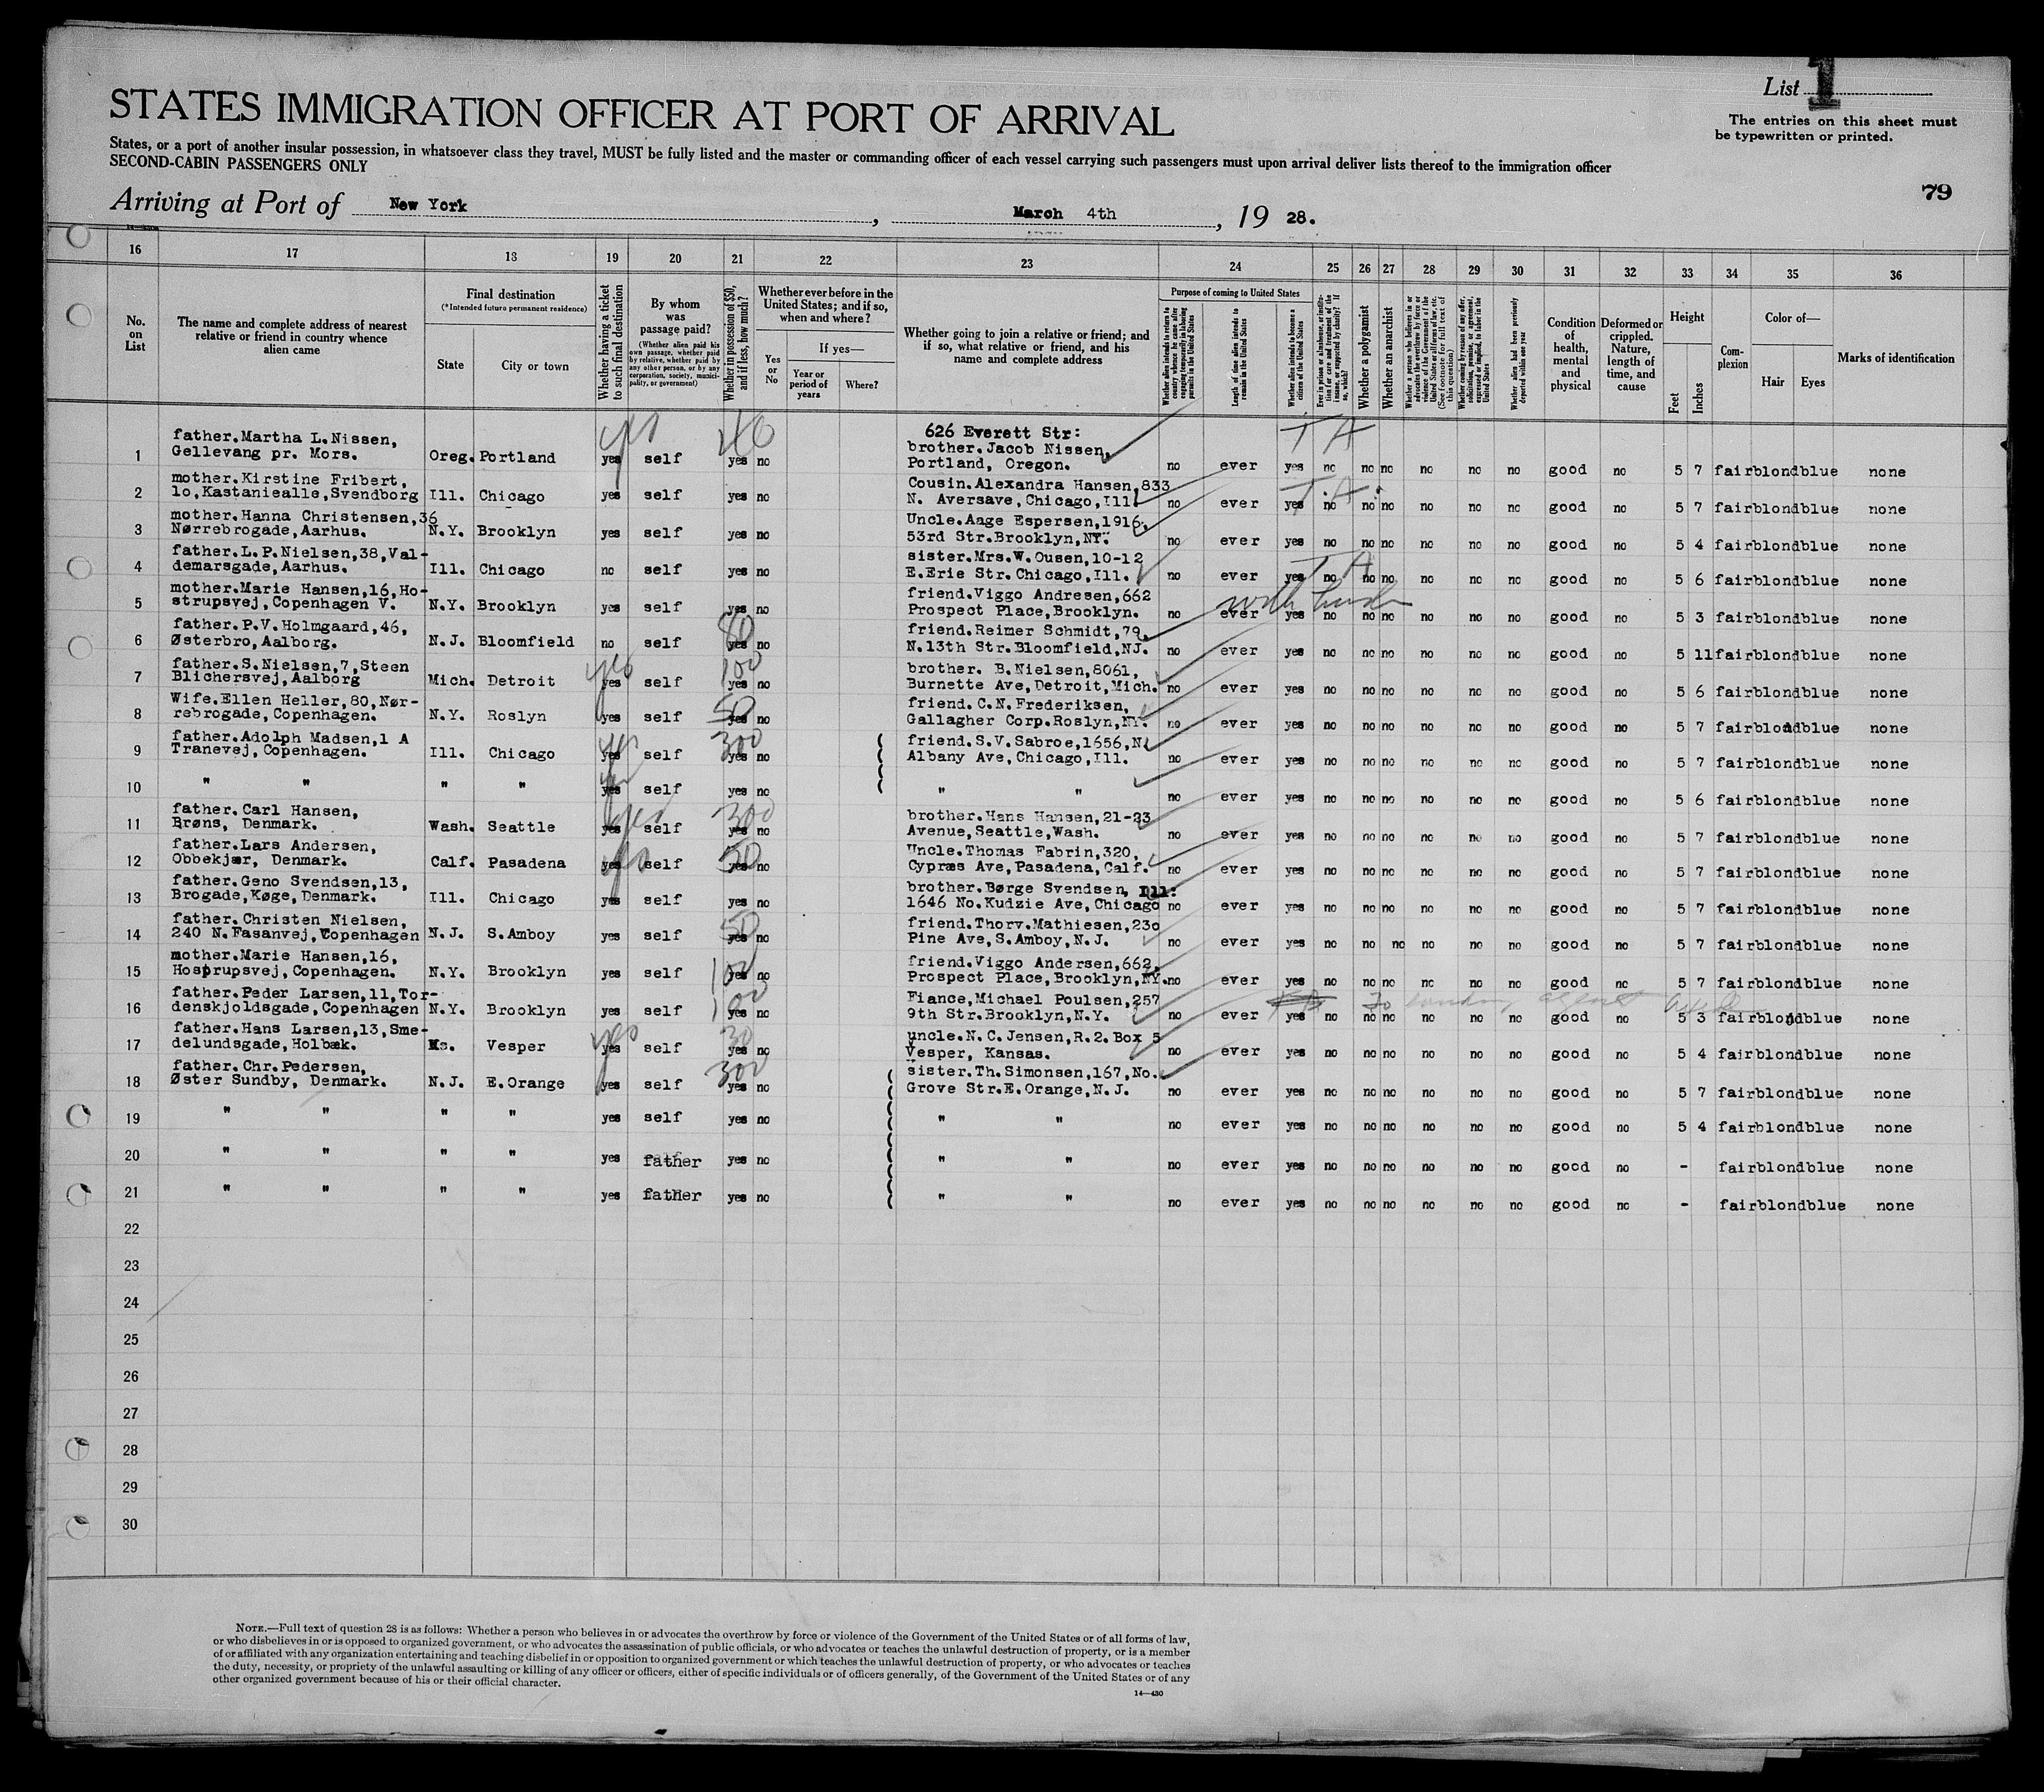 List 1
The entries on this sheet must
be typewritten or printed.
STATES IMMIGRATION OFFICER AT PORT OF ARRIVAL
States, or a port of another insular possession, in whatsoever class they travel, MUST be fully listed and the master or commanding officer of each vessel carrying such passengers must upon arrival deliver lists thereof to the immigration officer
SECOND-CABIN PASSENGERS ONLY
79
Arriving at Port of New York, March 4th, 19 28.
16 17 18 19 20 21 22 23 24 25 26 27 28 29 30 31 32 33 34 35 36
No. on List
The name and complete address of nearest relative or friend in country whence alien came
Final destination
(*Intended future permanent residence)
State
City or town
Whether having a ticket to such final destination
By whom was passage paid?
(Whether alien paid his own passage, whether paid by relative, whether paid by any other person, or by any corporation, society, municipality, or government)
Whether in possession of $50, and if less, how much?
Whether ever before in the United States; and if so, when and where?
Yes or No
If yes—
Year or period of years
Where?
Whether going to join a relative or friend; and if so, what relative or friend, and his name and complete address
Purpose of coming to United States
Length of time alien intends to remain in the United States
Whether alien intends to become a citizen of the United States
Whether a polygamist
Whether an anarchist
Whether alien had been previously deported within one year
Condition of health, mental and physical
Deformed or crippled. Nature, length of time, and cause
Height
Feet
Inches
Complexion
Color of—
Hair
Eyes
Marks of identification
1 father.Martha L.Nissen, Gellevang pr. Mors. Oreg. Portland yes self yes no 626 Everett Str: brother.Jacob Nissen, Portland, Oregon. no ever yes no no no no no no good no 5 7 fair blond blue none
2 mother.Kirstine Fribert, 1o,Kastaniealle,Svendborg Ill. Chicago yes self yes no Cousin.Alexandra Hansen,833 N. Aversave,Chicago,Ill. no ever yes no no no no no no good no 5 7 fair blond blue none
3 mother.Hanna Christensen,36 Nørrebrogade,Aarhus. N.Y. Brooklyn yes self yes no Uncle.Aage Espersen,1916, 53rd Str.Brooklyn,NY. no ever yes no no no no no no good no 5 4 fair blond blue none
4 father.L.P.Nielsen,38,Valdemarsgade,Aarhus. Ill. Chicago no self yes no sister.Mrs.W.Ousen,10-12 E.Erie Str.Chicago,Ill. no ever yes no no no no no no good no 5 6 fair blond blue none
5 mother.Marie Hansen,16,Hostrupsvej,Copenhagen V. N.Y. Brooklyn yes self yes no friend.Viggo Andresen,662 Prospect Place,Brooklyn. no ever yes no no no no no no good no 5 3 fair blond blue none
6 father.P.V.Holmgaard,46, Østerbro,Aalborg. N.J. Bloomfield no self 80 yes no friend.Reimer Schmidt,79, N.13th Str.Bloomfield,NJ. no ever yes no no no no no no good no 5 11 fair blond blue none
7 father.S.Nielsen,7,Steen Blichersvej,Aalborg Mich. Detroit yes self 100 yes no brother. B.Nielsen,8061, Burnette Ave,Detroit,Mich. no ever yes no no no no no no good no 5 6 fair blond blue none
8 Wife.Ellen Heller,80,Nørrebrogade,Copenhagen. N.Y. Roslyn yes self 50 yes no friend. C.N.Frederiksen, Gallagher Corp.Roslyn,NY. no ever yes no no no no no no good no 5 7 fair blond blue none
9 father.Adolph Madsen,1 A Tranevej,Copenhagen. Ill. Chicago yes self 300 yes no friend.S.V.Sabroe,1656,N. Albany Ave,Chicago,Ill. no ever yes no no no no no no good no 5 7 fair blond blue none
10 " " " " yes self yes no " " no ever yes no no no no no no good no 5 6 fair blond blue none
11 father.Carl Hansen, Brøns, Denmark. Wash. Seattle yes self 300 yes no brother.Hans Hansen,21-23 Avenue,Seattle,Wash. no ever yes no no no no no no good no 5 7 fair blond blue none
12 father.Lars Andersen, Obbekjær, Denmark. Calf. Pasadena yes self 50 yes no Uncle.Thomas Fabrin,320, Cypræs Ave,Pasadena,Calf. no ever yes no no no no no no good no 5 7 fair blond blue none
13 father.Geno Svendsen,13, Brogade,Køge,Denmark. Ill. Chicago yes self yes no brother.Børge Svendsen, Ill: 1646 No.Kudzie Ave,Chicago no ever yes no no no no no no good no 5 7 fair blond blue none
14 father.Christen Nielsen, 240 N.Fasanvej,Copenhagen N.J. S.Amboy yes self 50 yes no friend.Thorv.Mathiesen,23o Pine Ave,S.Amboy,N.J. no ever yes no no no no no no good no 5 7 fair blond blue none
15 mother.Marie Hansen,16, Hosprupsvej,Copenhagen. N.Y. Brooklyn yes self 100 yes no friend.Viggo Andersen,662, Prospect Place,Brooklyn,NY. no ever yes no no no no no no good no 5 7 fair blond blue none
16 father.Peder Larsen,11,Tordenskjoldsgade,Copenhagen N.Y. Brooklyn yes self 100 yes no Fiance,Michael Poulsen,257 9th Str.Brooklyn,N.Y. no ever yes no no no no no no good no 5 3 fair blond blue none
17 father.Hans Larsen,13,Smedelundsgade,Holbæk. Ks. Vesper yes self 30 yes no uncle.N.C.Jensen,R.2.Box 5 Vesper, Kansas. no ever yes no no no no no no good no 5 4 fair blond blue none
18 father.Chr.Pedersen, Øster Sundby, Denmark. N.J. E.Orange yes self 300 yes no sister.Th.Simonsen,167,No. Grove Str.E.Orange,N.J. no ever yes no no no no no no good no 5 7 fair blond blue none
19 " " " " yes self yes no " " no ever yes no no no no no no good no 5 4 fair blond blue none
20 " " " " yes father yes no " " no ever yes no no no no no no good no - fair blond blue none
21 " " " " yes father yes no " " no ever yes no no no no no no good no - fair blond blue none
22
23
24
25
26
27
28
29
30
NOTE.—Full text of question 28 is as follows: Whether a person who believes in or advocates the overthrow by force or violence of the Government of the United States or of all forms of law,
or who disbelieves in or is opposed to organized government, or who advocates the assassination of public officials, or who advocates or teaches the unlawful destruction of property, or is a member
of or affiliated with any organization entertaining and teaching disbelief in or opposition to organized government or which teaches the unlawful destruction of property, or who advocates or teaches
the duty, necessity, or propriety of the unlawful assaulting or killing of any officer or officers, either of specific individuals or of officers generally, of the Government of the United States or of any
other organized government because of his or their official character.
14—430